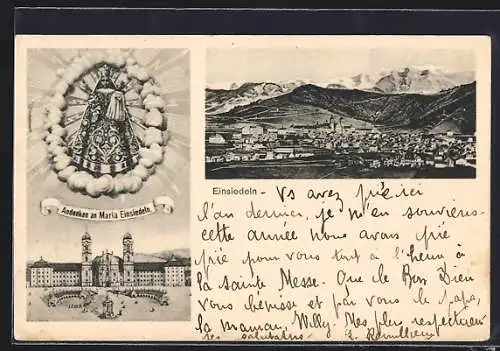 Andenken an Maria Einsiedeln.
Einsiedeln -
Vs avez prié ici
l'an dernier, je m'en souviens
cette année nous avons prié
prié pour vous tout à l'heure à
la sainte Messe. Que le Bon Dieu
vous bénisse et par vous le papa,
la maman, Willy. Mes plus respectueuses
salutations